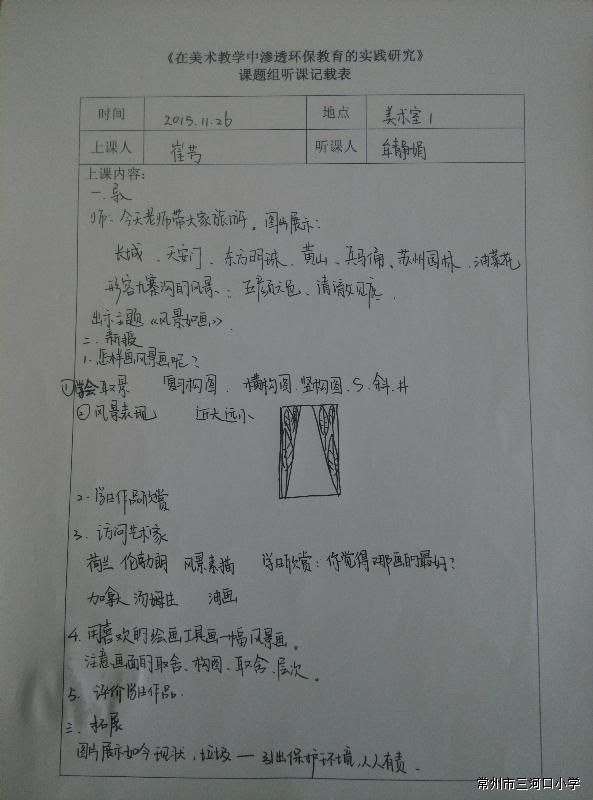 《在美术教学中渗透环保教育的实践研究》
课题组听课记载表
时间 2015.11.26 地点 美术室1
上课人 崔芳 听课人 牟静娟
上课内容:
一.导入
师:今天老师带大家旅游。图片展示:
长城、天安门、东方明珠、黄山、兵马俑、苏州园林、油菜花
形容九寨沟的风景:五颜六色、清澈见底.
出示主题《风景如画》.
二.新授
1.怎样画风景画呢?
①学会取景 复习构图. 横构图.竖构图.S.斜.井
②风景表现 近大远小
2.学生作品欣赏
3.访问艺术家
荷兰 伦勃朗 风景素描 学生欣赏:你觉得哪画的最好?
加拿大 汤姆生 油画
4.用喜欢的绘画工具画一幅风景画。
注意画面的取舍、构图、取舍、层次。
5.评价学生作品.
三.拓展
图片展示如今现状,垃圾——引出保护环境,人人有责.
常州市三河口小学